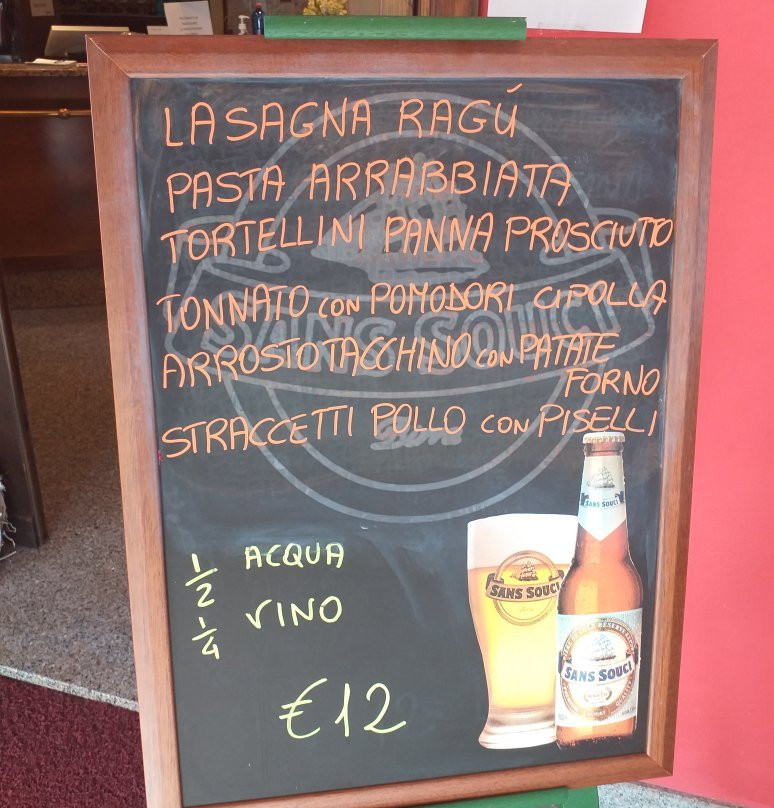 LASAGNA RAGÚ
PASTA ARRABBIATA
TORTELLINI PANNA PROSCIUTTO
TONNATO con POMODORI CIPOLLA
ARROSTO TACCHINO con PATATE
FORNO
STRACCETTI POLLO con PISELLI
SANS SOUCI
1/2 ACQUA
1/4 VINO
€12
SANS SOUCI
SANS SOUCI
SANS SOUCI